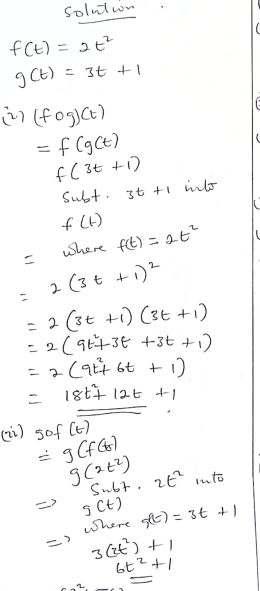 solution .
f(t) = 2t²
g(t) = 3t + 1
(i) (fog)(t)
= f(g(t)
f(3t + 1)
Subt. 3t + 1 into
f(t)
= where f(t) = 2t²
= 2(3t + 1)²
= 2(3t + 1)(3t + 1)
= 2(9t² + 3t + 3t + 1)
= 2(9t² + 6t + 1)
= 18t² + 12t + 1
(ii) gof(t)
= g(f(t)
g(2t²)
Subt. 2t² into
=> g(t)
=> where g(t) = 3t + 1
3(2t²) + 1
6t² + 1